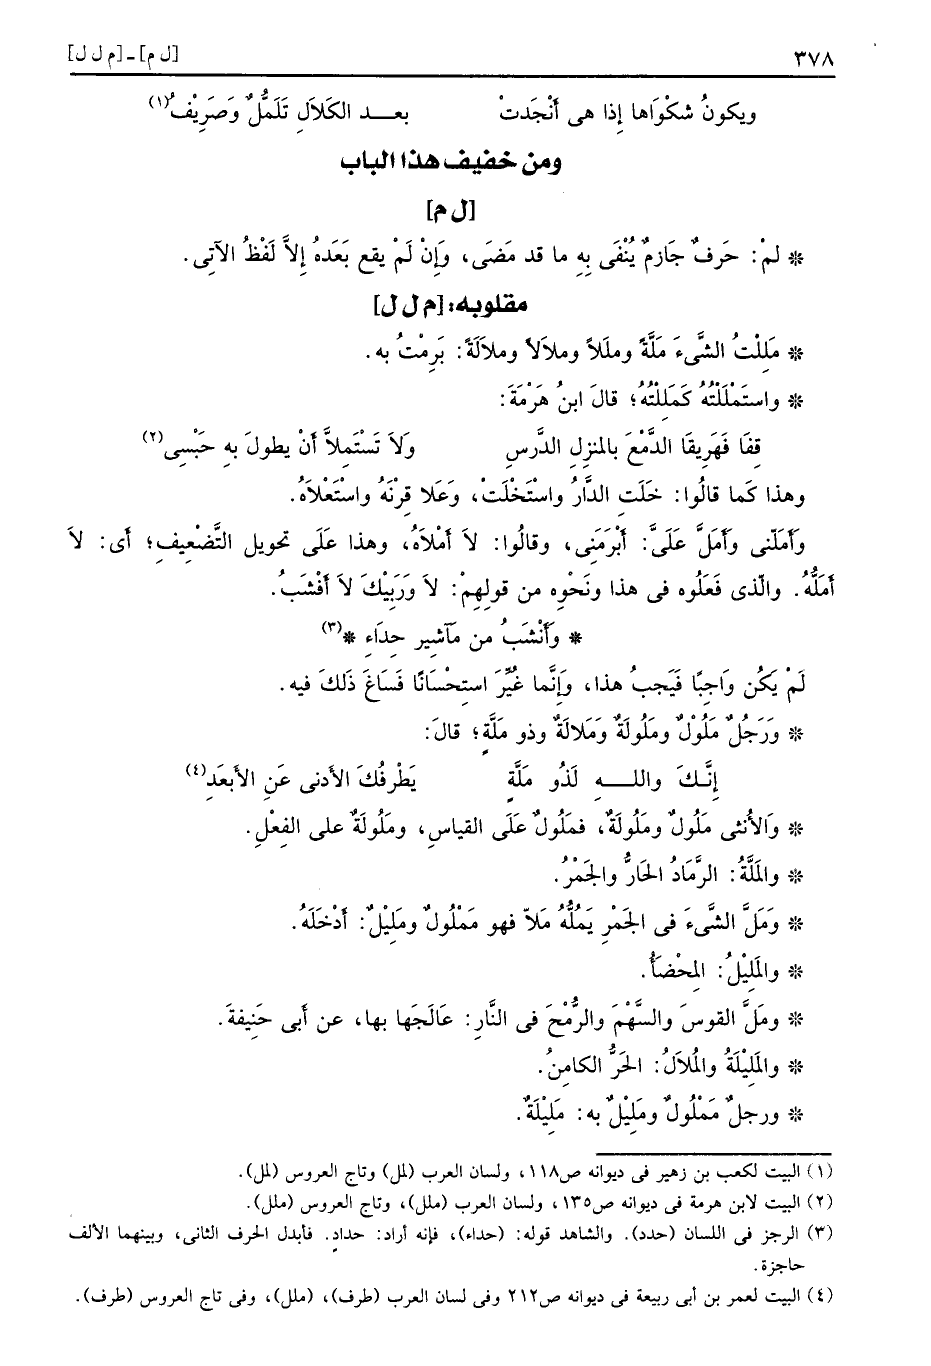 ٣٧٨ [ل م] - [م ل ل]
ويكونُ شكْوَاها إذا هى أنْجَدتْ بعـــد الكَلَالِ تَلَمُّلٌ وَصَرِيْفُ(١)
ومن خفيف هذا الباب
[ل م]
* لمْ: حَرفٌ جَازمٌ يُنْفَى بِهِ ما قد مَضَى، وَإنْ لَمْ يقع بَعَدهُ إلاَّ لَفْظُ الآتِى.
مقلوبه: [م ل ل]
* مَلِلْتُ الشَّىءَ مَلَّةً وملَلاً وملاَلاً وملاَلَةً: بَرِمْتُ به.
* واستَمْلَلْتُهُ كَمَلِلْتُهُ؛ قالَ ابنُ هَرْمَةَ:
قِفَا فَهَرِيقَا الدَّمْعَ بالمنزِلِ الدَّرسِ وَلاَ تَسْتَمِلاَّ أنْ يطولَ بِهِ حَبْسِى(٢)
وهذا كَما قالُوا: خَلَتِ الدَّارُ واسْتَخْلَتْ، وَعَلا قِرْنَهُ واسْتَعْلاَهُ.
وَأمَلّنى وَأمَلَّ عَلَىَّ: أبْرَمَنِى، وقالُوا: لاَ أمْلاَهُ، وهذا عَلَى تحويل التَّضْعِيفِ؛ أى: لاَ
أمَلُّهُ. والّذى فَعَلُوه فى هذا ونَحْوِه من قولِهِمْ: لاَ وَرَبِيْكَ لاَ أفْشَبُ.
* وَأنْشَبُ من مَآشيرٍ حِدَاءِ *(٣)
لَمْ يَكُن وَاجِبًا فَيَجِبُ هذا، وَإنَّما غُيِّرَ استِحْسَانًا فَسَاغَ ذَلكَ فيه.
* وَرَجُلٌ مَلُوْلٌ ومَلُولَةٌ وَمَلالَةٌ وذو مَلَّةٍ؛ قالَ:
إنَّـكَ واللــــهِ لَذُو مَلَّةٍ يَطْرِفُكَ الأدنى عَنِ الأبعَدِ(٤)
* وَالأنثى مَلُولٌ ومَلُولَةٌ، فمَلُولٌ عَلَى القياسِ، ومَلُولَةٌ على الفِعْلِ.
* والمَلَّةُ: الرَّمَادُ الحَارُّ والجَمْرُ.
* وَمَلَّ الشَّىءَ فى الجَمْرِ يَمُلُّهُ مَلاّ فهو مَمْلُولٌ ومَلِيْلٌ: أدْخَلَهُ.
* والمَلِيْلُ: المِحْضَأُ.
* ومَلَّ القوسَ والسَّهْمَ والرُّمْحَ فى النَّارِ: عَالَجَها بها، عن أبى حَنِيفةَ.
* والمَلِيْلَةُ والمُلاَلُ: الحَرُّ الكامِنُ.
* ورجلٌ مَمْلُولٌ ومَلِيْلٌ به: مَلِيْلَةٌ.
(١) البيت لكعب بن زهير فى ديوانه ص١١٨، ولسان العرب (لمل) وتاج العروس (لمل).
(٢) البيت لابن هرمة فى ديوانه ص١٣٥، ولسان العرب (ملل)، وتاج العروس (ملل).
(٣) الرجز فى اللسان (حدد). والشاهد قوله: (حداء)، فإنه أراد: حداد. فأبدل الحرف الثانى، وبينهما الألف
حاجزة.
(٤) البيت لعمر بن أبى ربيعة فى ديوانه ص٢١٢ وفى لسان العرب (طرف)، (ملل)، وفى تاج العروس (طرف).